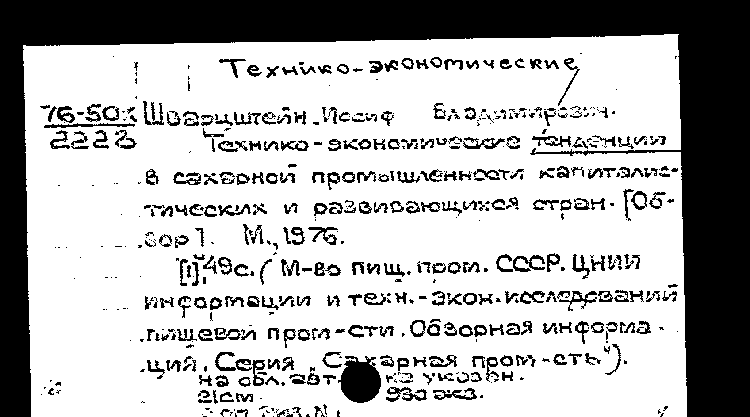 Технико-экономические
76-50к Шварцштейн. Иосиф Владимирович.
2223 Технико-экономические тенденции
в сахарной промышленности капиталис-
тических и развивающихся стран. [Об-
зор]. М., 1976.
[1], 49с. (М-во пищ. пром. СССР. ЦНИИ
информации и техн.-экон. исследований
пищевой пром-сти. Обзорная информа-
ция. Серия „Сахарная пром-сть").
на обл. авт. не указан.
21см 930 экз.